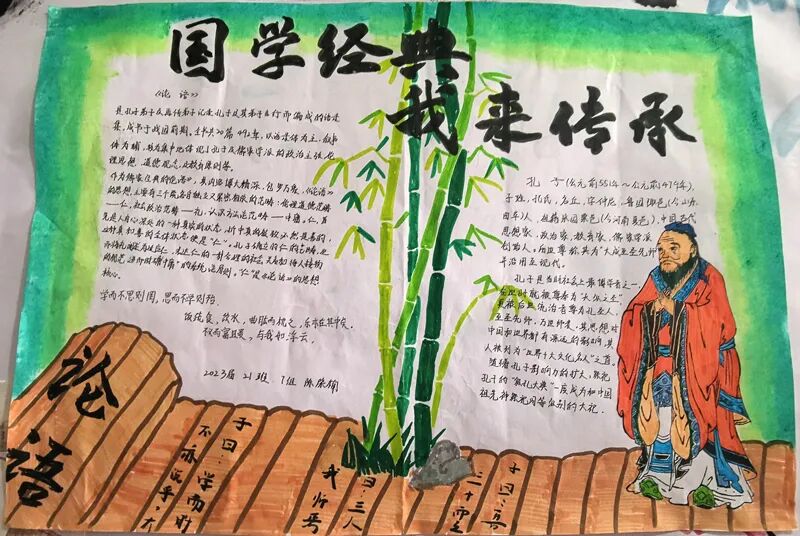 国学经典
我来传承
《论语》
是孔子弟子及再传弟子记录孔子及其弟子言行而编成的语录
集,成书于战国前期。全书共20篇492章,以语录体为主,叙事
体为辅,较为集中地体现了孔子及儒家学派的政治主张、伦
理思想、道德观念、及教育原则等。
作为儒家经典的《论语》,其内容博大精深,包罗万象,《论语》
的思想主要有三个既各自独立又紧密相依的范畴:伦理道德范畴
—仁,社会政治范畴—礼,认识方法论范畴—中庸。仁,首
先是人内心深处的一种真实的状态,
核心。
学而不思则罔,思而不学则殆。
饭疏食,饮水,曲肱而枕之,乐亦在其中矣。
不义而富且贵,与我如浮云。
2023届 21班 7组
孔子(公元前551年~公元前479年),
子姓,孔氏,名丘,字仲尼,鲁国陬邑(今山东
曲阜)人,祖籍宋国栗邑(今河南夏邑),中国古代
思想家、政治家、教育家,儒家学派
创始人。
孔子是当时社会上最博学者之一,
在世时就被尊奉为“天纵之圣”
更被后世统治者尊为孔圣人、
至圣先师、万世师表。其思想对
中国和世界都有深远的影响,其
人被列为“世界十大文化名人”之首。
随着孔子影响力的扩大,祭祀
孔子的“祭孔大典”一度成为和中国
祖先神祭祀同等级别的大祀。
论语
子曰:学而时
不亦说乎?
曰:三人
我师焉
子曰:吾
三十而